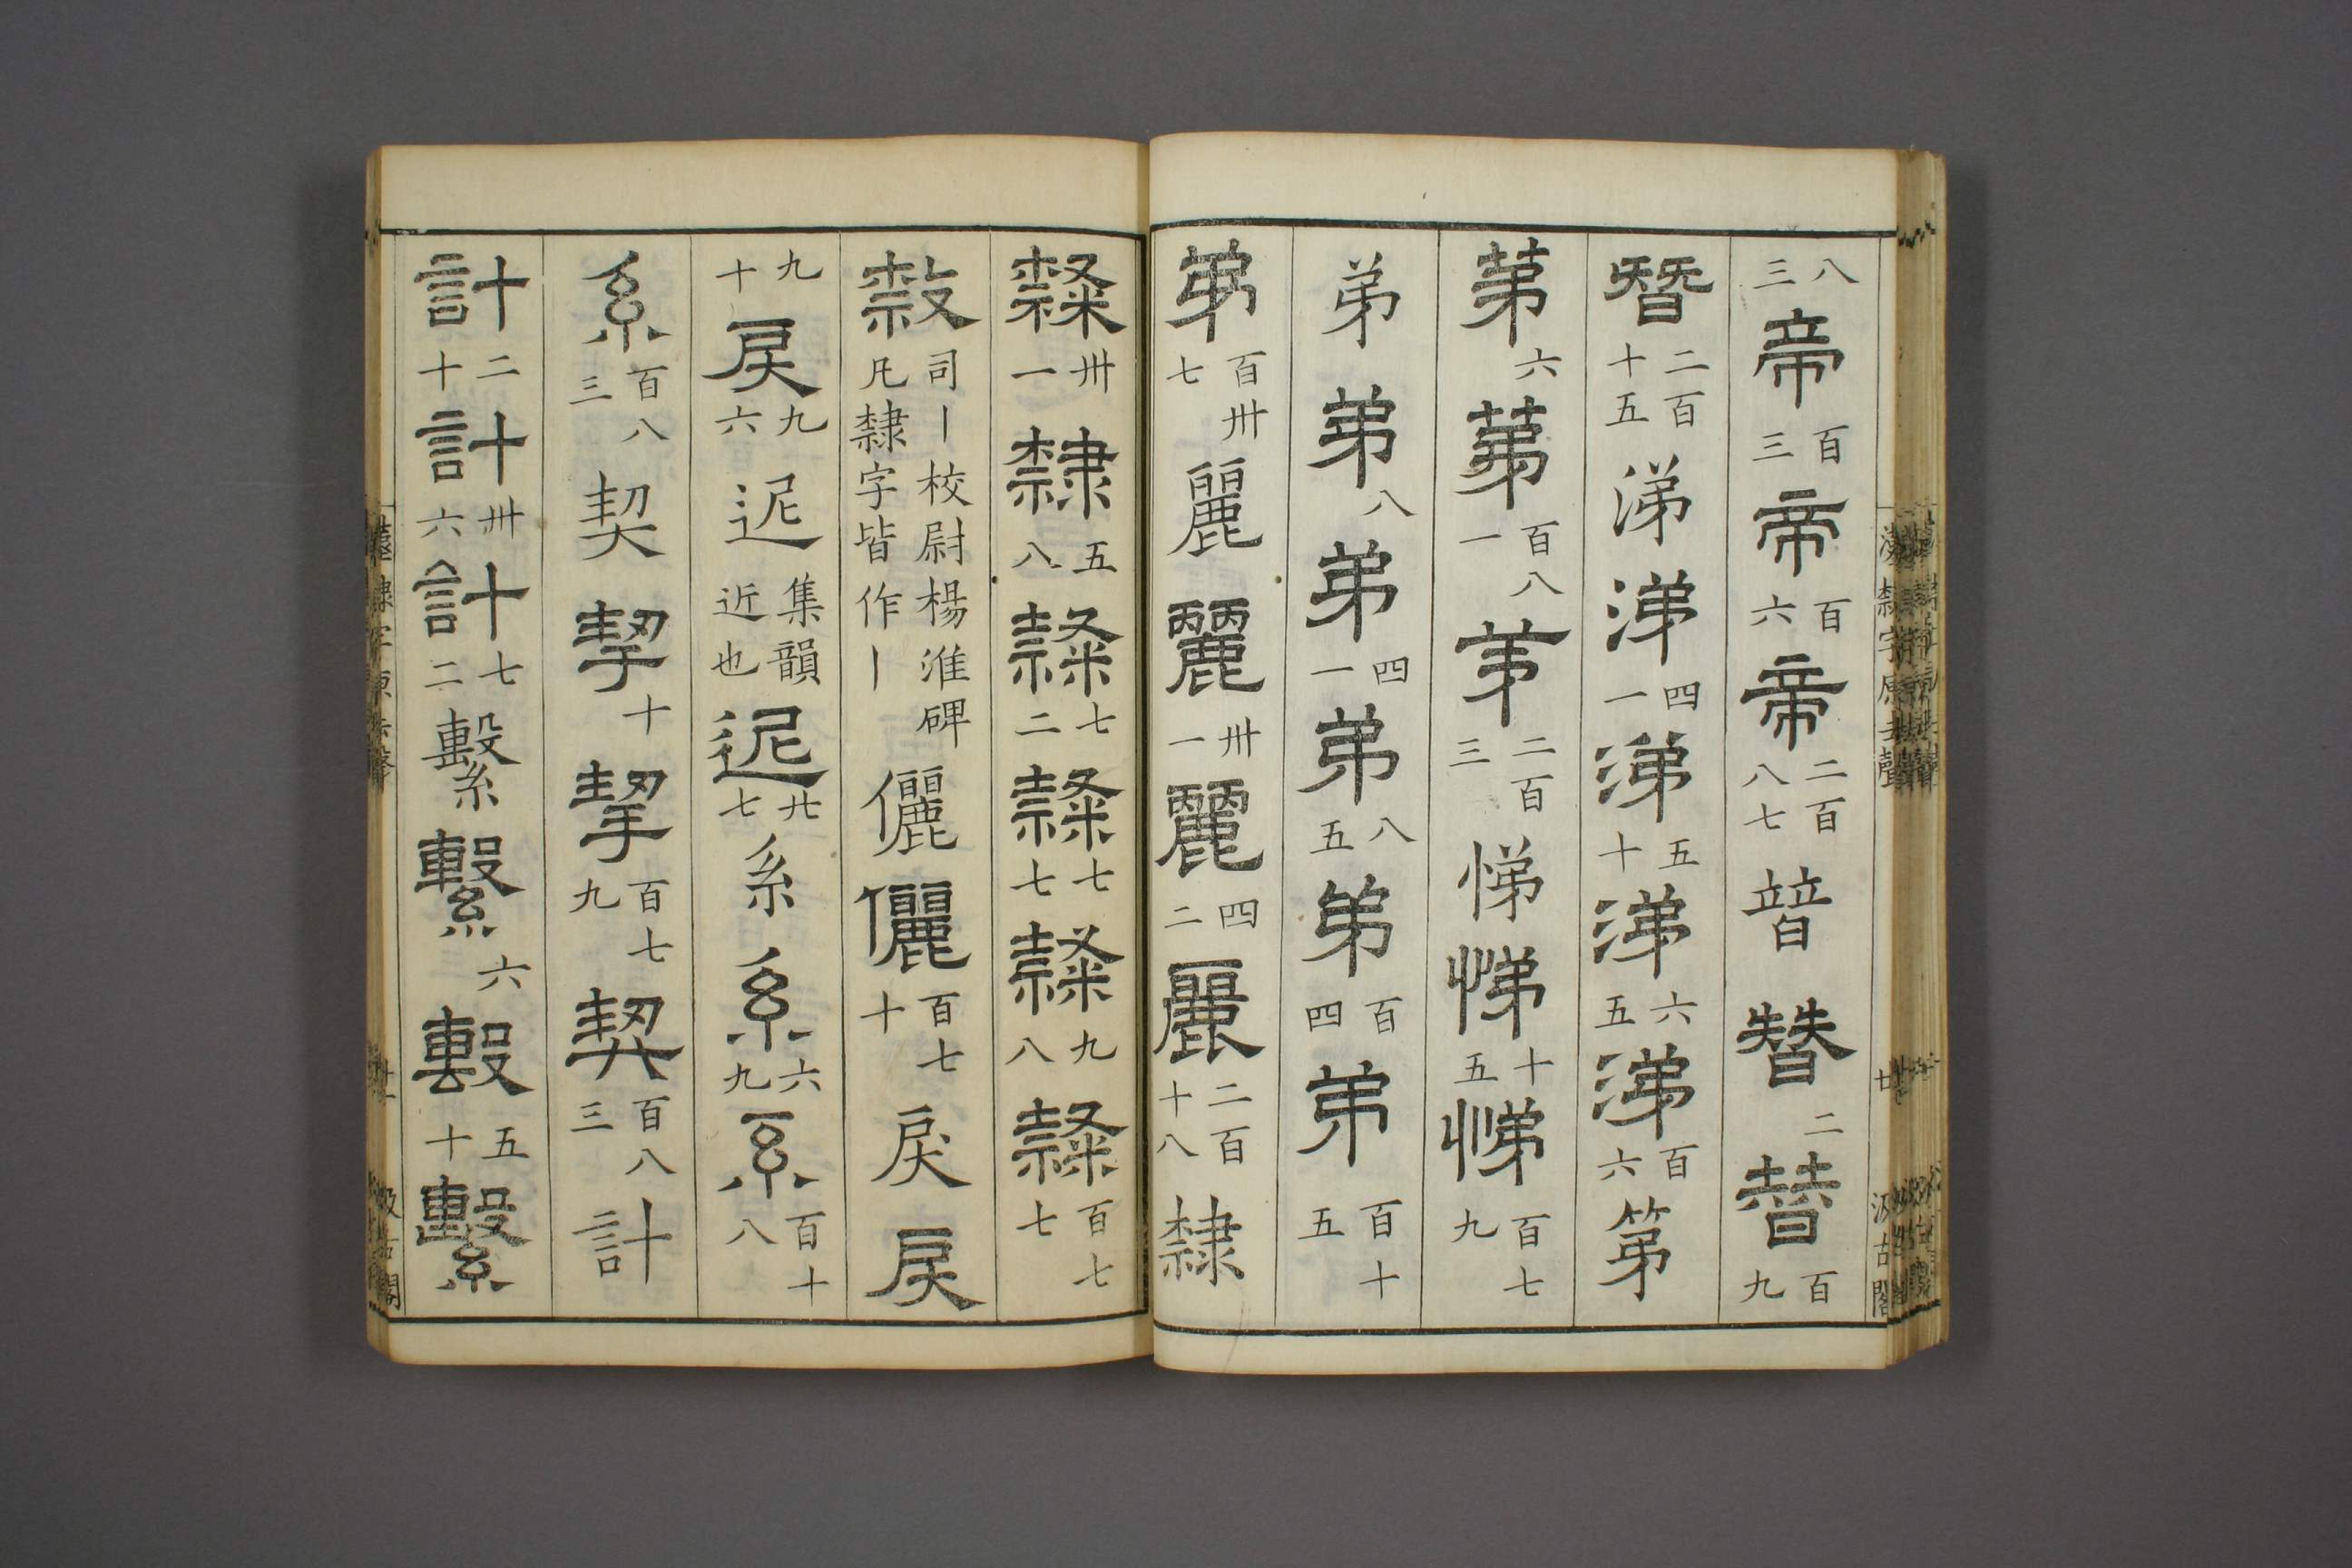 八三帝百三帝百六帝二百八七朁替二替百九
朁二百十五涕涕四一涕五十涕六五涕百六第
苐六苐百八一苐二百三悌悌十五悌百七九
弟弟八弟四一弟八五弟百四弟百十五
弟百卅七麗麗卅一麗四二麗二百十八隸
隸卅一隸五八隸七二隸七七隸九八隸百七七
隸司丨校尉楊淮碑凡隸字皆作丨儷儷百七十戾戾
九十戾九六迡集韻近也迡廿七系系六九系百十八
系百八三契挈十挈百七九契百八三計
計二十計卅六計七二繫繫六繫五十繫
漢隸字原去聲
廿
汲古閣